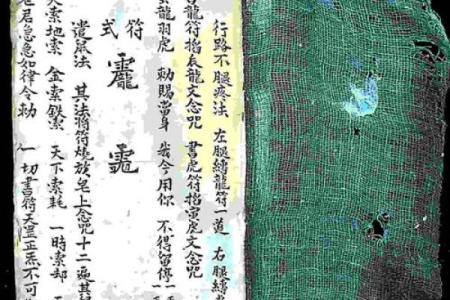 行路不腿疼法 左腿縛龍符一道 右腿縛
書龍符掐辰龍文念咒 書虎符掐寅虎文念咒
龍羽虎 勅賜當身 我今用你 不得留停一
符
式
遣鼠法 其法將符燒放皂上念咒十二遍其
索地索 金索鉄索 天下索耗 一時索却
老君急急如律令勅 一切書符天罡正炁不可